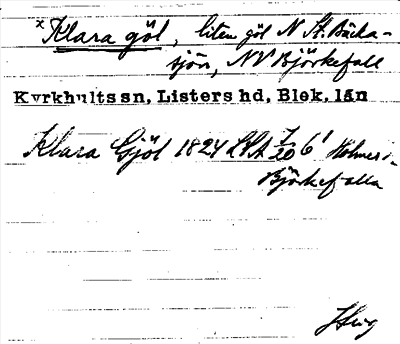 x Klara göl, liten göl N St. Bäcka-
sjön, NV Björkefall
Kyrkhults sn, Listers hd, Blek. län
Klara Gjöl 1824 LSA 7/20 6¹ Holmen i
Björkefalla